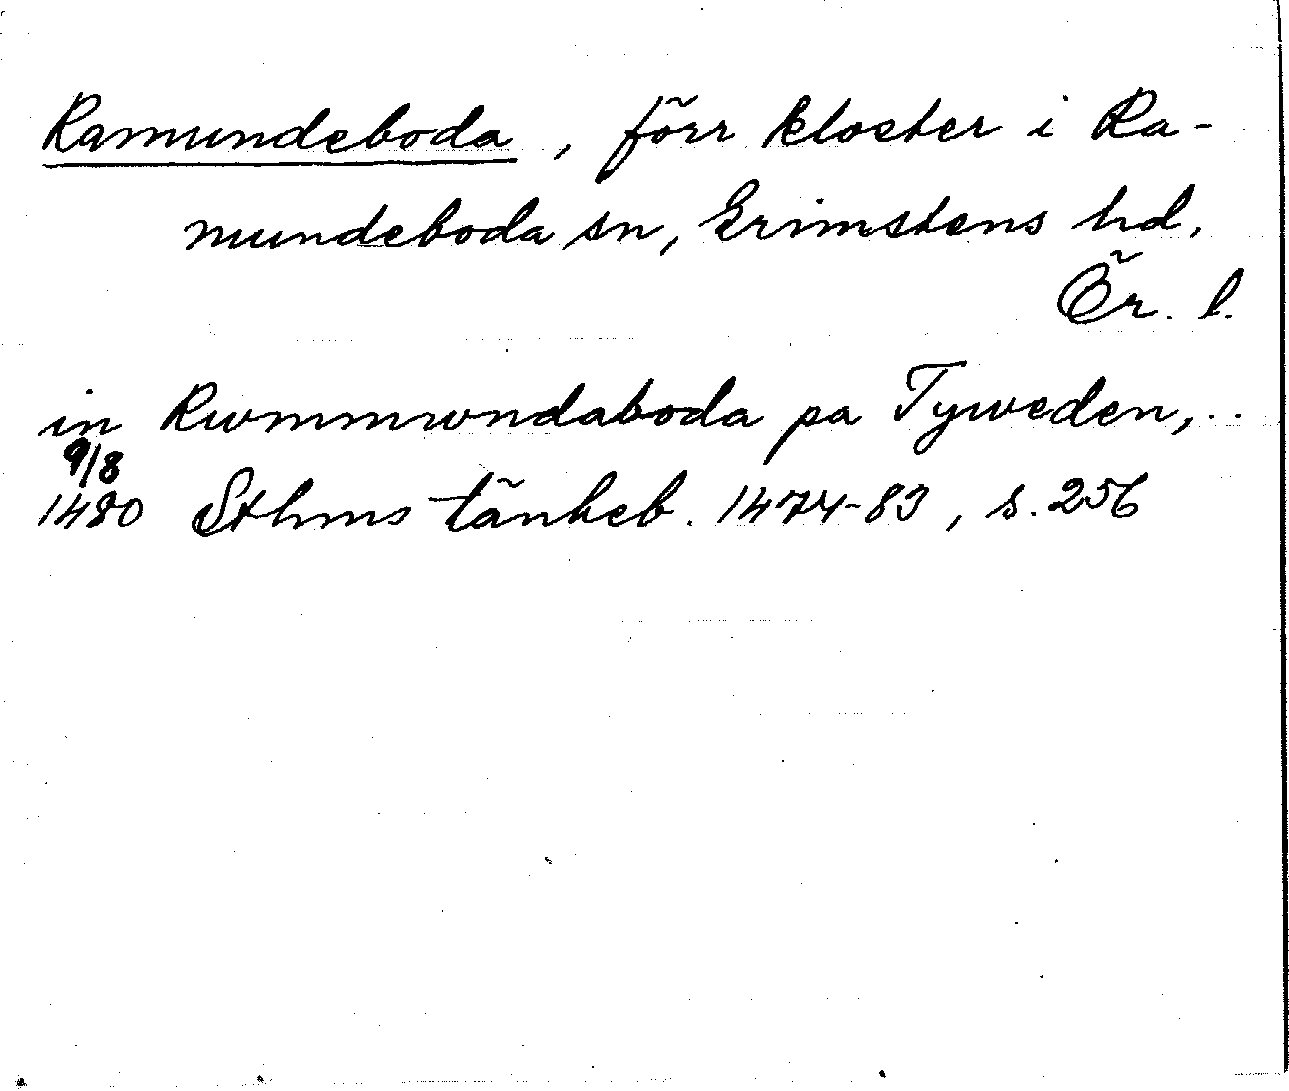 Ramundeboda, förr kloster i Ra-
mundeboda sn, Grimstens hd.
Ör. l.
in Rwmmwndaboda pa Tyweden,..
9/8
1480 Sthms tänkeb. 1474-83, s. 256